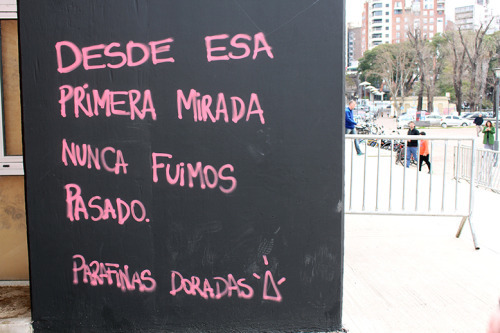 DESDE ESA
PRIMERA MIRADA
NUNCA FUIMOS
PASADO.
PARAFINAS DORADAS